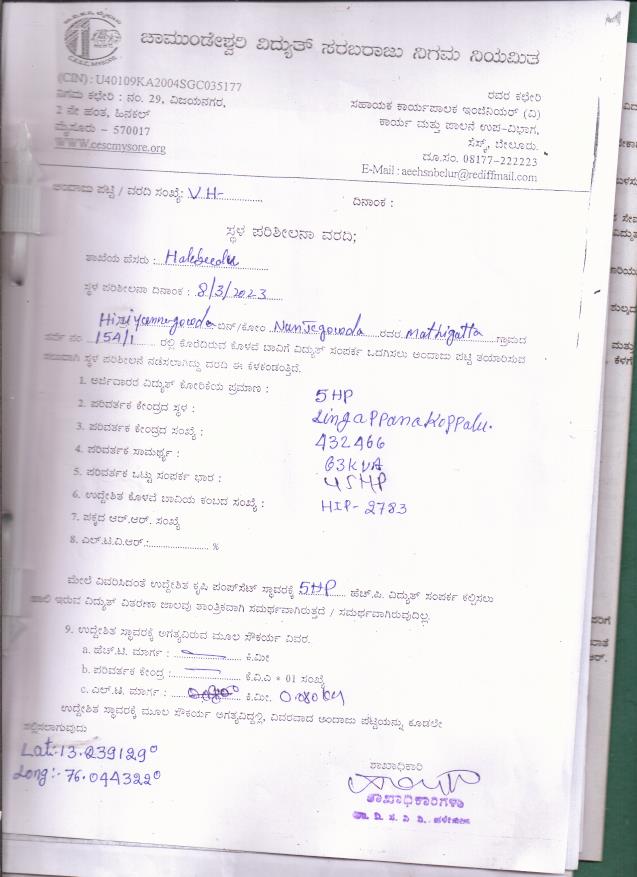 ಚಾಮುಂಡೇಶ್ವರಿ ವಿದ್ಯುತ್ ಸರಬರಾಜು ನಿಗಮ ನಿಯಮಿತ
(CIN) : U40109KA2004SGC035177
ನಿಗಮ ಕಛೇರಿ : ನಂ. 29, ವಿಜಯನಗರ,
2 ನೇ ಹಂತ, ಹಿನಕಲ್
ಮೈಸೂರು - 570017
www.cescmysore.org
ರವರ ಕಛೇರಿ
ಸಹಾಯಕ ಕಾರ್ಯಪಾಲಕ ಇಂಜಿನಿಯರ್ (ವಿ)
ಕಾರ್ಯ ಮತ್ತು ಪಾಲನೆ ಉಪ-ವಿಭಾಗ,
ಸೆಸ್ಕ್, ಬೇಲೂರು.
ದೂ.ಸಂ. 08177-222223
E-Mail : aeehsnbelur@rediffmail.com
ಅಂದಾಜು ಪಟ್ಟಿ / ವರದಿ ಸಂಖ್ಯೆ: V.H-
ದಿನಾಂಕ :
ಸ್ಥಳ ಪರಿಶೀಲನಾ ವರದಿ;
ಶಾಖೆಯ ಹೆಸರು : Halebeedu
ಸ್ಥಳ ಪರಿಶೀಲನಾ ದಿನಾಂಕ : 8/3/2023
Hiriyannegowda ಬಿನ್/ಕೋಂ Nanjegowda ರವರ Mathigatta ಗ್ರಾಮದ
ಸರ್ವೆ ನಂ 154/1 ರಲ್ಲಿ ಕೊರೆದಿರುವ ಕೊಳವೆ ಬಾವಿಗೆ ವಿದ್ಯುತ್ ಸಂಪರ್ಕ ಒದಗಿಸಲು ಅಂದಾಜು ಪಟ್ಟಿ ತಯಾರಿಸುವ
ಸಲುವಾಗಿ ಸ್ಥಳ ಪರಿಶೀಲನೆ ನಡೆಸಲಾಗಿದ್ದು ವರದಿ ಈ ಕೆಳಕಂಡಂತ್ತಿದೆ.
1. ಅರ್ಜಿದಾರರ ವಿದ್ಯುತ್ ಕೋರಿಕೆಯ ಪ್ರಮಾಣ : 5HP
2. ಪರಿವರ್ತಕ ಕೇಂದ್ರದ ಸ್ಥಳ : Lingappanakoppalu.
3. ಪರಿವರ್ತಕ ಕೇಂದ್ರದ ಸಂಖ್ಯೆ : 432466
4. ಪರಿವರ್ತಕ ಸಾಮರ್ಥ್ಯ : 63KVA
5. ಪರಿವರ್ತಕ ಒಟ್ಟು ಸಂಪರ್ಕ ಭಾರ : 45HP
6. ಉದ್ದೇಶಿತ ಕೊಳವೆ ಬಾವಿಯ ಕಂಬದ ಸಂಖ್ಯೆ : HIP-2783
7. ಪಕ್ಕದ ಆರ್.ಆರ್. ಸಂಖ್ಯೆ
8. ಎಲ್.ಟಿ.ವಿ.ಆರ್.: %
ಮೇಲೆ ವಿವರಿಸಿದಂತೆ ಉದ್ದೇಶಿತ ಕೃಷಿ ಪಂಪ್‌ಸೆಟ್ ಸ್ಥಾವರಕ್ಕೆ 5HP ಹೆಚ್.ಪಿ. ವಿದ್ಯುತ್ ಸಂಪರ್ಕ ಕಲ್ಪಿಸಲು
ಹಾಲಿ ಇರುವ ವಿದ್ಯುತ್ ವಿತರಣಾ ಜಾಲವು ತಾಂತ್ರಿಕವಾಗಿ ಸಮರ್ಥವಾಗಿರುತ್ತದೆ / ಸಮರ್ಥವಾಗಿರುವುದಿಲ್ಲ.
9. ಉದ್ದೇಶಿತ ಸ್ಥಾವರಕ್ಕೆ ಅಗತ್ಯವಿರುವ ಮೂಲ ಸೌಕರ್ಯ ವಿವರ.
a. ಹೆಚ್.ಟಿ ಮಾರ್ಗ : ಕಿ.ಮೀ
b. ಪರಿವರ್ತಕ ಕೇಂದ್ರ : ಕೆ.ವಿ.ಎ * 01 ಸಂಖ್ಯೆ
c. ಎಲ್.ಟಿ. ಮಾರ್ಗ : ಕಿ.ಮೀ.
ಉದ್ದೇಶಿತ ಸ್ಥಾವರಕ್ಕೆ ಮೂಲ ಸೌಕರ್ಯ ಅಗತ್ಯವಿದ್ದಲ್ಲಿ, ವಿವರವಾದ ಅಂದಾಜು ಪಟ್ಟಿಯನ್ನು ಕೂಡಲೇ
ಸಲ್ಲಿಸಲಾಗುವುದು
Lat:13.239129°
Long:-76.044322°
ಶಾಖಾಧಿಕಾರಿ
ಶಾಖಾಧಿಕಾರಿಗಳು